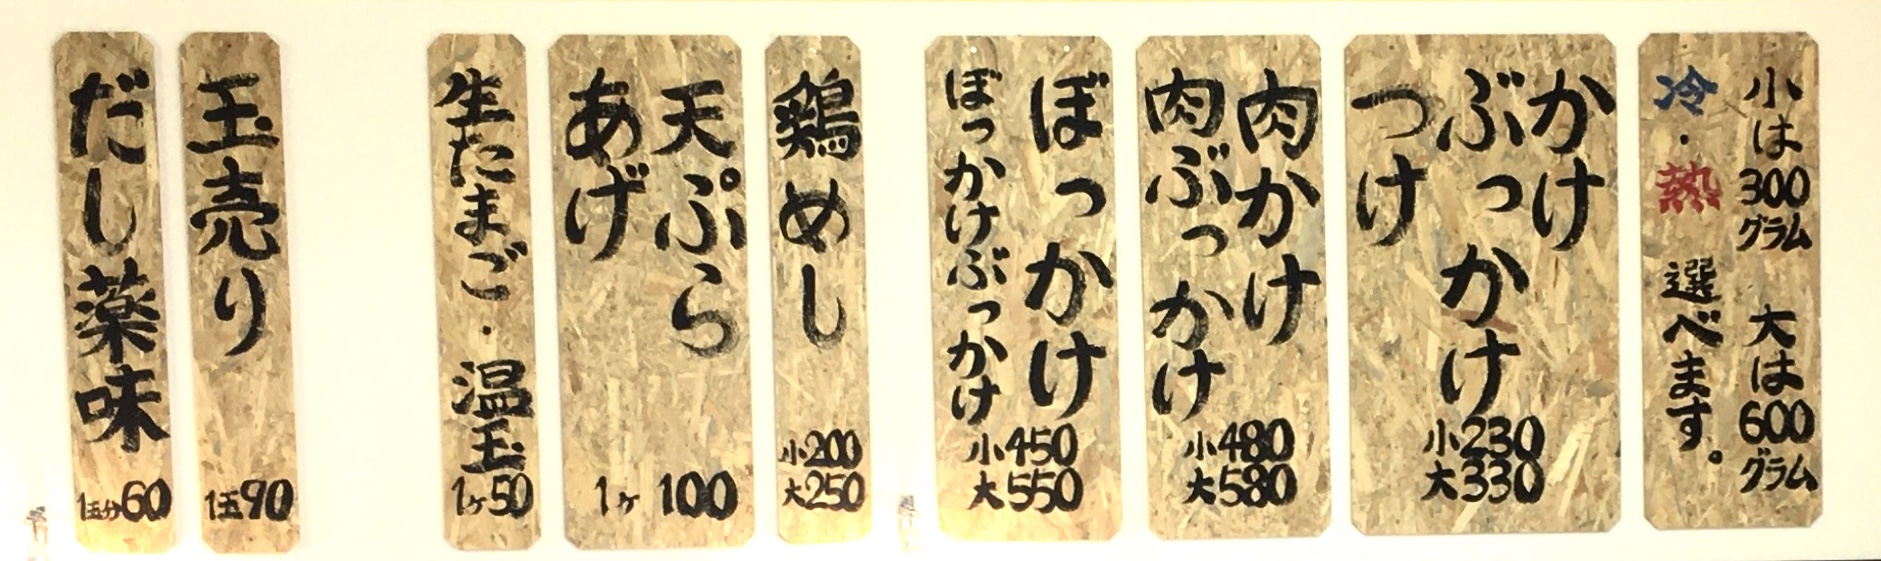 小は300グラム 大は600グラム
冷・熱 選べます。
かけ
ぶっかけ
つけ
小230
大330
肉かけ
肉ぶっかけ
小480
大580
ぼっかけ
ぼっかけぶっかけ
小450
大550
鶏めし
小200
大250
天ぷら
あげ
1ヶ 100
生たまご・温玉
1ヶ50
玉売り
1玉90
だし薬味
1玉分60